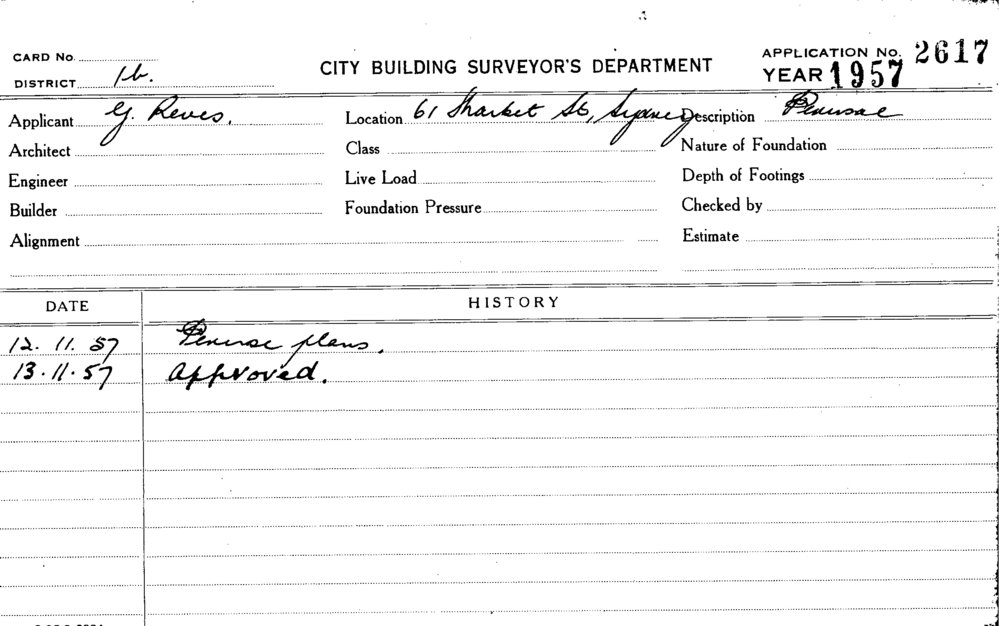 CARD No.
DISTRICT 1b.
CITY BUILDING SURVEYOR'S DEPARTMENT
APPLICATION No. 2617
YEAR 1957
Applicant G. Reves. Location 61 Market St, Sydney Description Perusal
Architect Class Nature of Foundation
Engineer Live Load Depth of Footings
Builder Foundation Pressure Checked by
Alignment Estimate
DATE HISTORY
12.11.57 Peruse plans.
13.11.57 Approved.